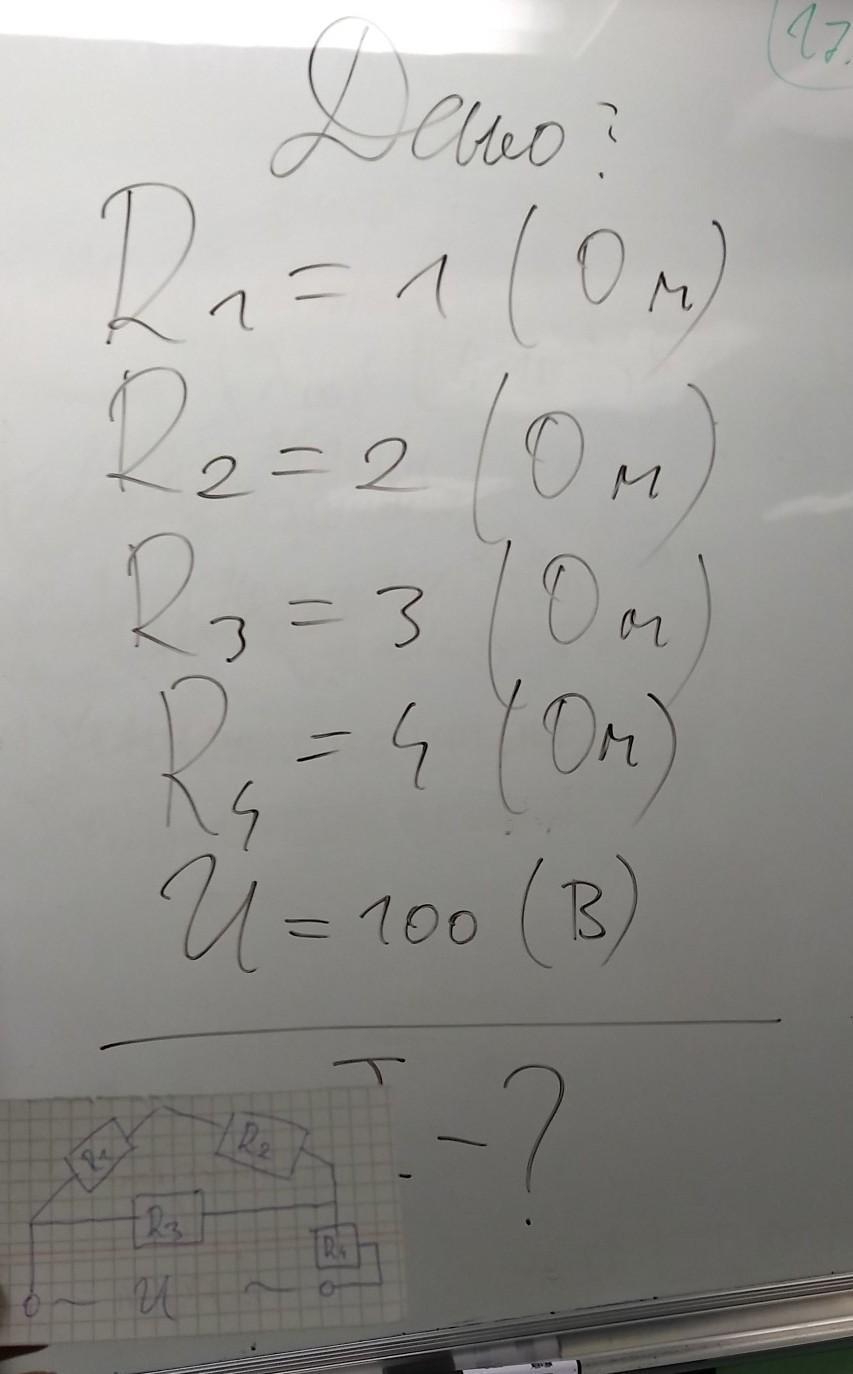 17.
Дано:
R1 = 1 (Ом)
R2 = 2 (Ом)
R3 = 3 (Ом)
R4 = 4 (Ом)
U = 100 (В)
I - ?
R1
R2
R3
R4
~ U ~